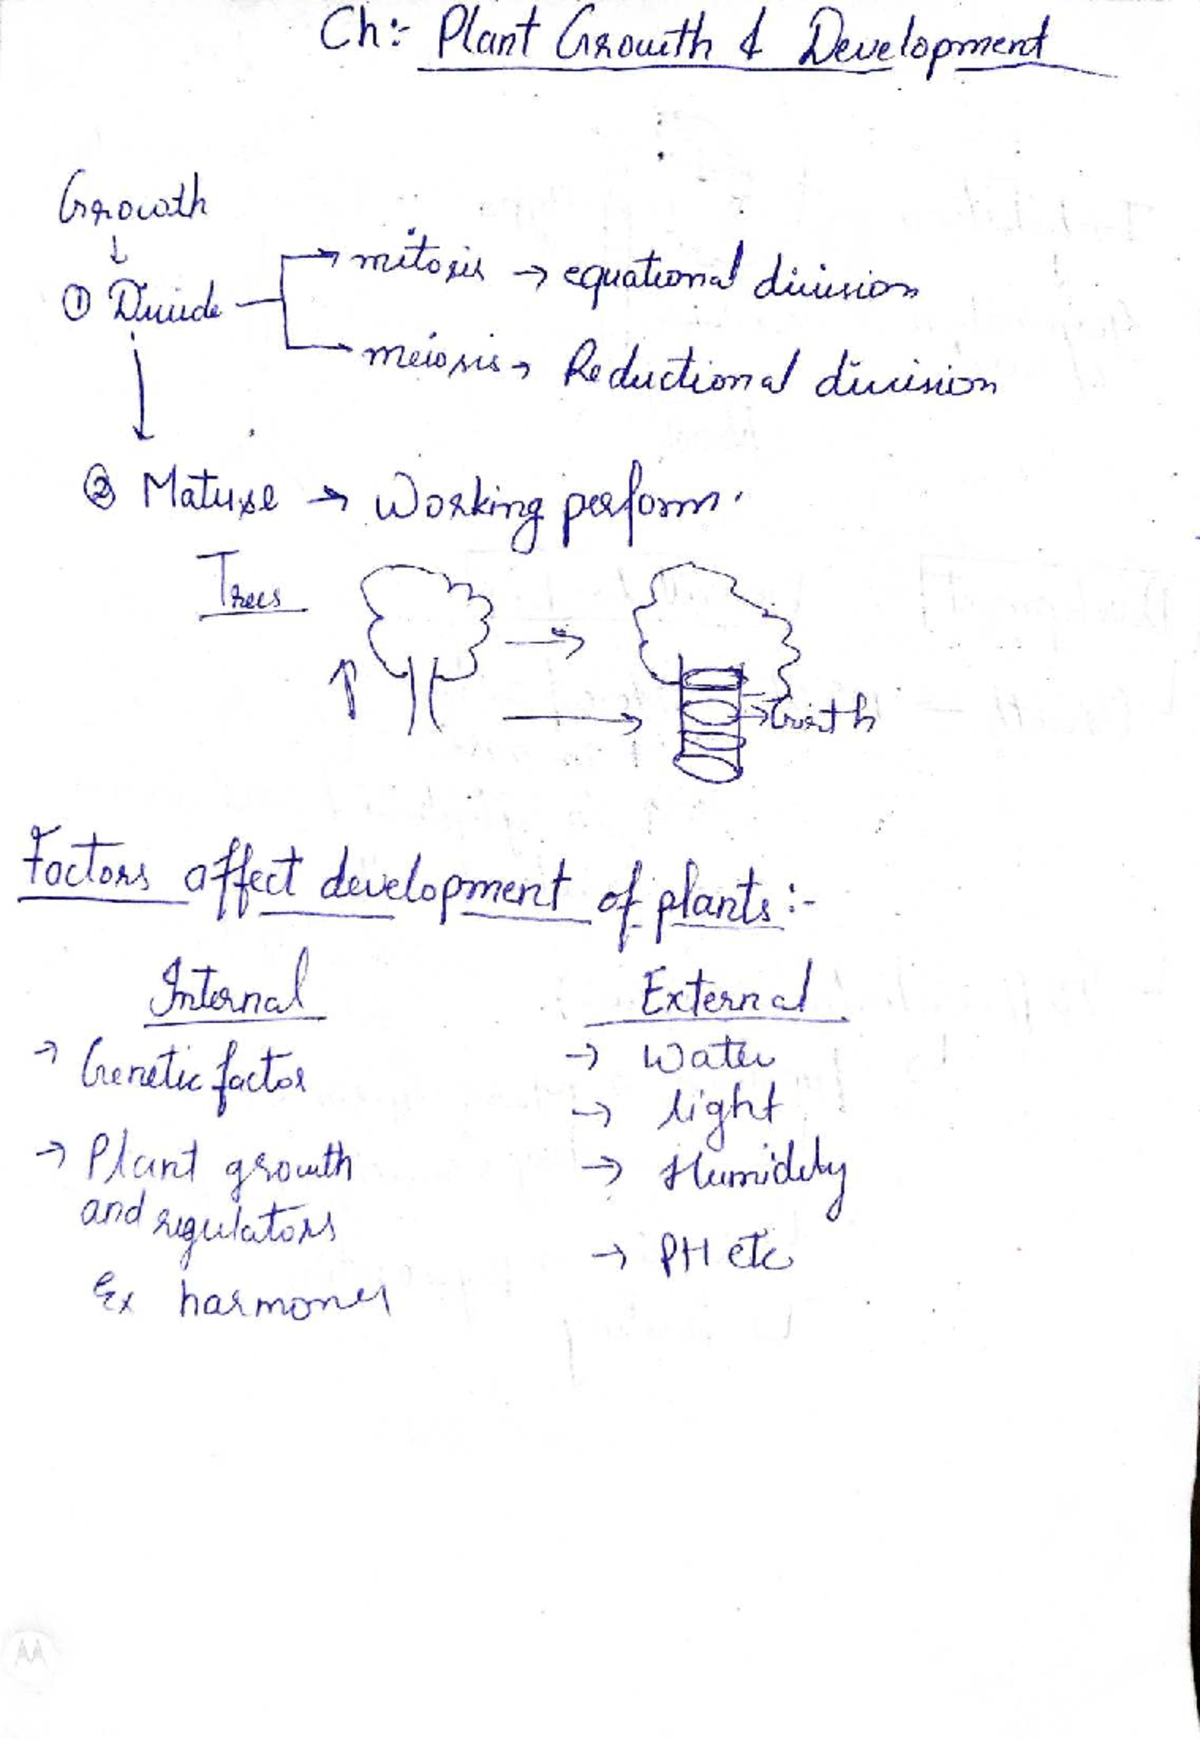 Ch:- Plant Growth & Development
Growth
① Divide
mitosis → equational division
meiosis → Reductional division
② Mature → Working perform.
Trees
→ Girth
Factors affect development of plants:-
Internal
→ Genetic factor
→ Plant growth
and regulators
Ex harmones
External
→ Water
→ light
→ Humidity
→ PH etc